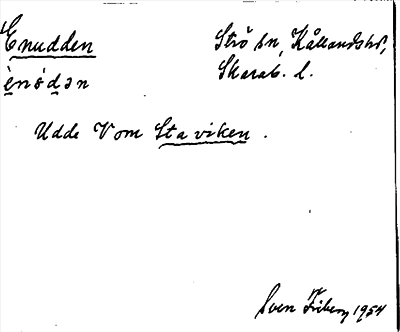 Enudden
Strö sn, Kållandshd,
ènódən
Skarab. l.
Udde V om Staviken.
Sven Friberg 1954